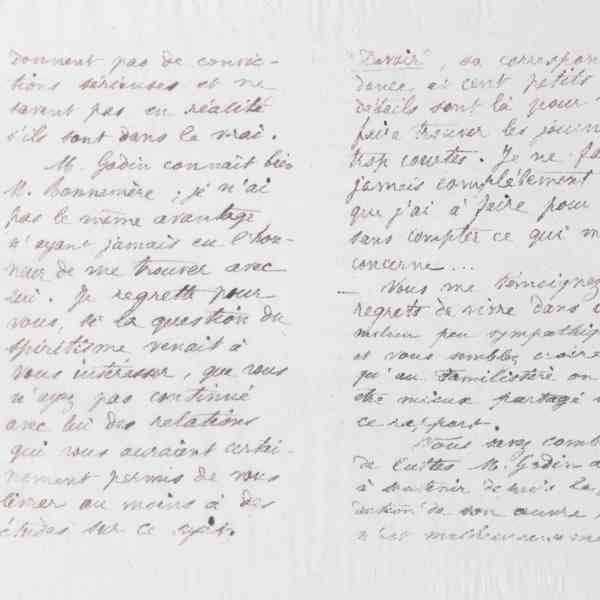 donnent pas de convic-
tions sérieuses et ne
savent pas en réalité
s'ils sont dans le vrai.
M. Godin connait bien
M. Bonnemère ; je n'ai
pas le même avantage,
n'ayant jamais eu l'hon-
neur de me trouver avec
lui. Je regrette pour
vous, si la question du
spiritisme venait à
vous intéresser, que vous
n'ayez pas continué
avec lui des relations
qui vous auraient certai-
nement permis de vous
livrer au moins à des
études sur ce sujet.
"Devoir", sa correspon
dance, et cent petits
détails sont là pour
faire trouver les journ
trop courtes. Je ne fa
jamais complètement
que j'ai à faire pour
sans compter ce qui m
concerne...
Vous me témoignez
regrets de vivre dans
milieu peu sympathiq
et vous semblez croire
qu'au Familistère on
être mieux partagé
ce rapport.
Vous savez comb
de luttes M. Godin a
à soutenir depuis la
dation de son œuvre
n'est malheureuseme